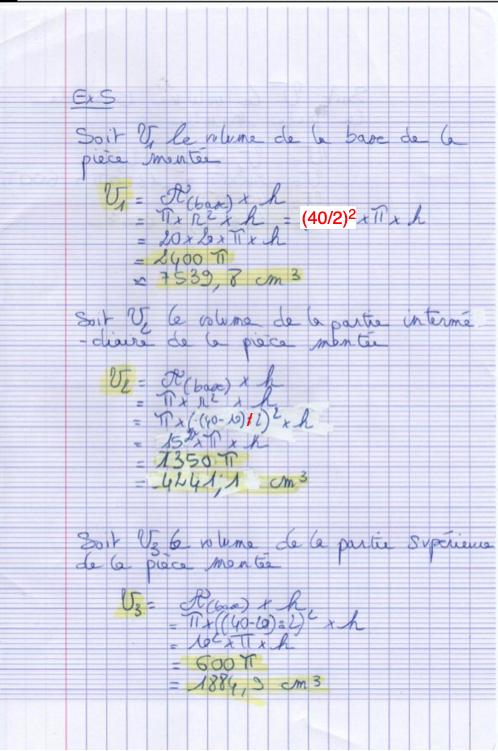 Ex 5
Soit V₁ le volume de la base de la
pièce montée
V₁ = A(base) x h
= π x r² x h = (40/2)² x π x h
= 20 x 20 x π x h
= 2400 π
≈ 7539,8 cm³
Soit V₂ le volume de la partie intermé
-diaire de la pièce montée
V₂ = A(base) x h
= π x r² x h
= π x ((40-10)/2)² x h
= 15² x π x h
= 1350 π
= 4241,1 cm³
Soit V₃ le volume de la partie supérieure
de la pièce montée
V₃ = A(base) x h
= π x ((40-20)÷2)² x h
= 10² x π x h
= 600 π
= 1884,9 cm³